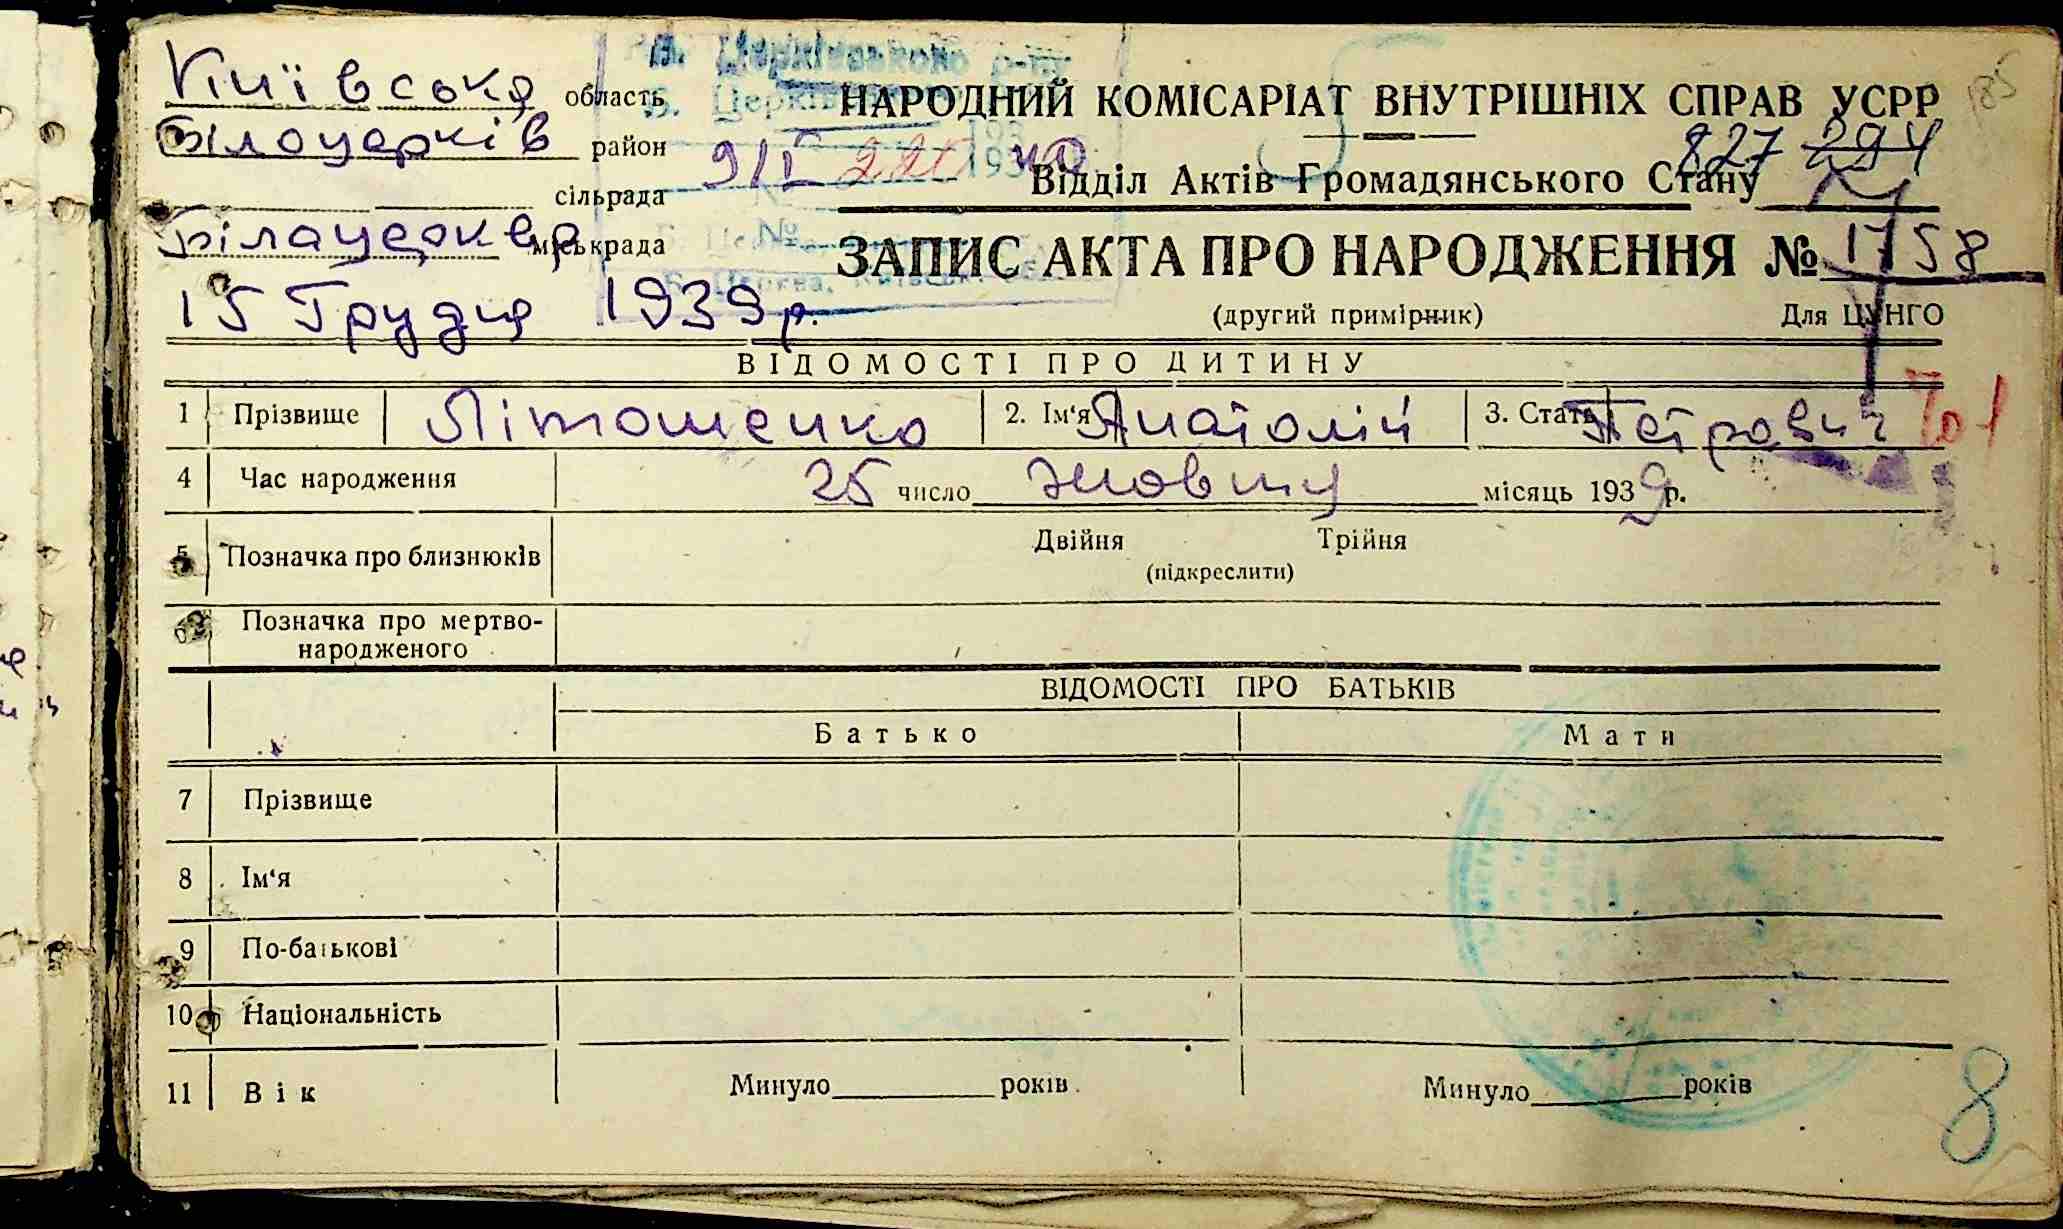 Київська область
Білоцерків район
сільрада
Білацерква міськрада
15 Грудня 1939 р.
Церківського р-ну
9/І 1940
НАРОДНИЙ КОМІСАРІАТ ВНУТРІШНІХ СПРАВ УСРР
827 294
Відділ Актів Громадянського Стану
ЗАПИС АКТА ПРО НАРОДЖЕННЯ № 1758
(другий примірник) Для ЦУНГО
ВІДОМОСТІ ПРО ДИТИНУ
1 Прізвище Літошенко 2. Ім‘я Анатолій 3. Стать Петрович
4 Час народження 25 число Жовтня місяць 1939 р.
5 Позначка про близнюків Двійня Трійня
(підкреслити)
Позначка про мертво-
народженого
ВІДОМОСТІ ПРО БАТЬКІВ
Батько Мати
7 Прізвище
8 Ім‘я
9 По-батькові
10 Національність
11 Вік Минуло років Минуло років
8